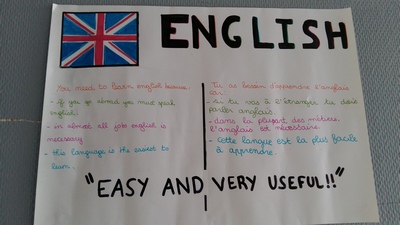 ENGLISH
You need to learn english because:
- If you go abroad you must speak
english.
- in almost all jobs english is
necessary
- this language is the easiest to
learn.
Tu as besoin d'apprendre l'anglais
car:
- si tu vas à l'étranger tu dois
parler anglais.
- dans la plupart des métiers
l'anglais est nécessaire.
- cette langue est la plus facile
à apprendre.
"EASY AND VERY USEFUL!!"